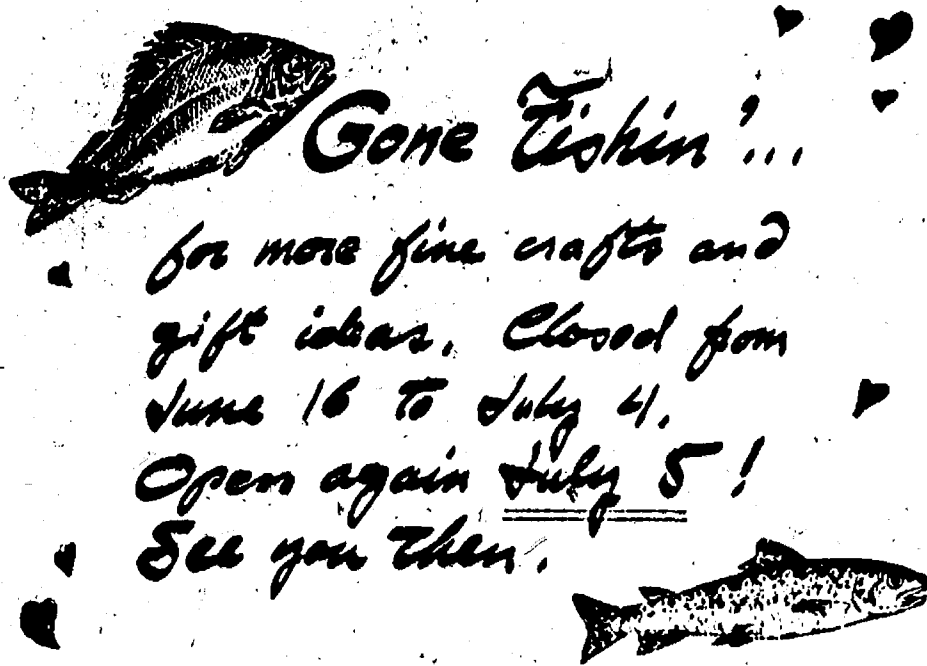 Gone Fishin'...
for more fine crafts and
gift ideas. Closed from
June 16 to July 4.
Open again July 5!
See you then.